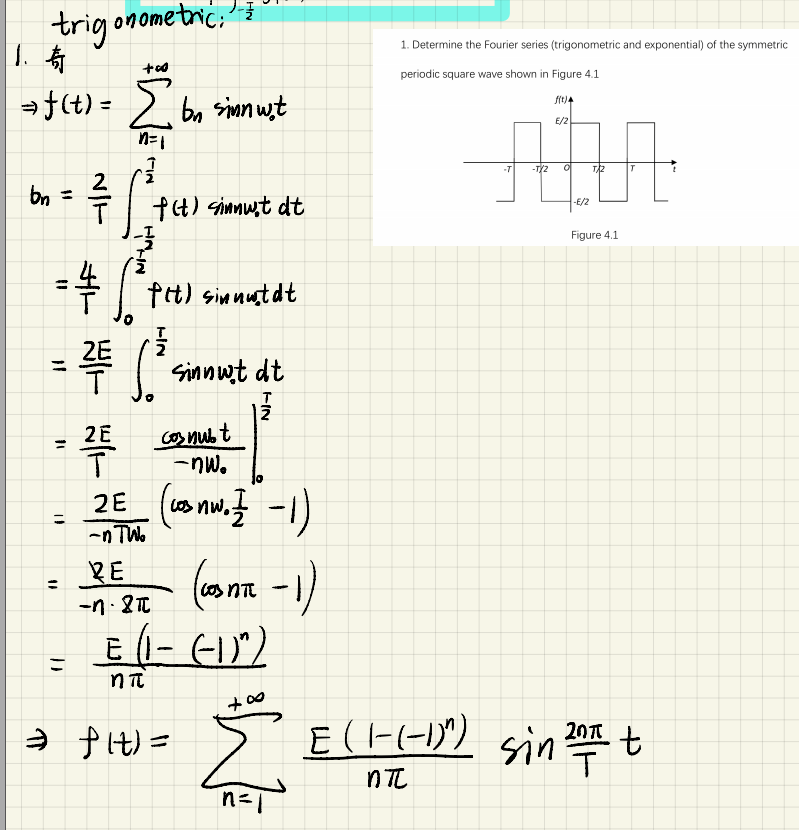 trigonometric:
1. 奇
⇒ f(t) = ∑_{n=1}^{+∞} bn sin nω₀t
bn = 2/T ∫_{-T/2}^{T/2} f(t) sin nω₀t dt
= 4/T ∫_0^{T/2} f(t) sin nω₀t dt
= 2E/T ∫_0^{T/2} sin nω₀t dt
= 2E/T cos nω₀t / -nω₀ |_0^{T/2}
= 2E / -nTω₀ (cos nω₀ T/2 - 1)
= 2E / -n·2π (cos nπ - 1)
= E(1-(-1)ⁿ) / nπ
⇒ f(t) = ∑_{n=1}^{+∞} E(1-(-1)ⁿ) / nπ sin 2nπ/T t
1. Determine the Fourier series (trigonometric and exponential) of the symmetric
periodic square wave shown in Figure 4.1
f(t)
E/2
-T -T/2 O T/2 T t
-E/2
Figure 4.1